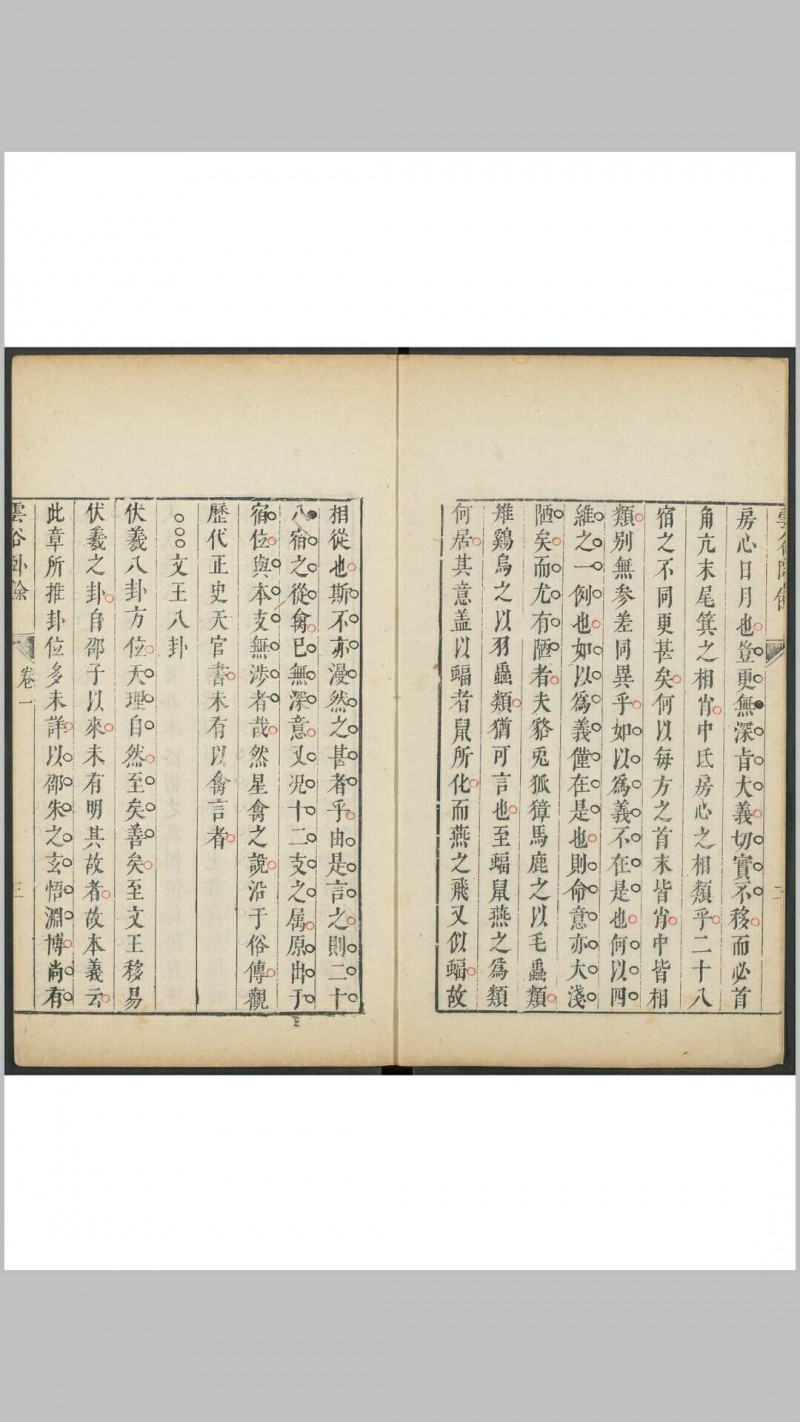 房心日月也豈更無深肯大義切實不移而必首
角亢末尾箕之相肖中氐房心之相類乎二十八
宿之不同更甚矣何以每方之首末皆肖中皆相
類別無參差同異乎如以為義不在是也何以四
維之一例也如以為義僅在是也則命意亦大淺
陋矣而尤有陋者夫貉兎狐獐馬鹿之以毛蟲類
雉鷄烏之以羽蟲類猶可言也至蝠鼠燕之為類
何居其意盖以蝠者鼠所化而燕之飛又似蝠故
相從也斯不亦漫然之甚者乎由是言之則二十
八宿之從禽已無深意又况十二支之属原出于
宿位與本支無涉者哉然星禽之說沿于俗傳觀
歷代正史天官書未有以禽言者
文王八卦
伏羲八卦方位天理自然至矣善矣至文王移易
伏羲之卦自邵子以來未有明其故者故本義云
此章所推卦位多未詳以邵朱之玄悟淵博尚有
雲谷卧餘 卷一 三